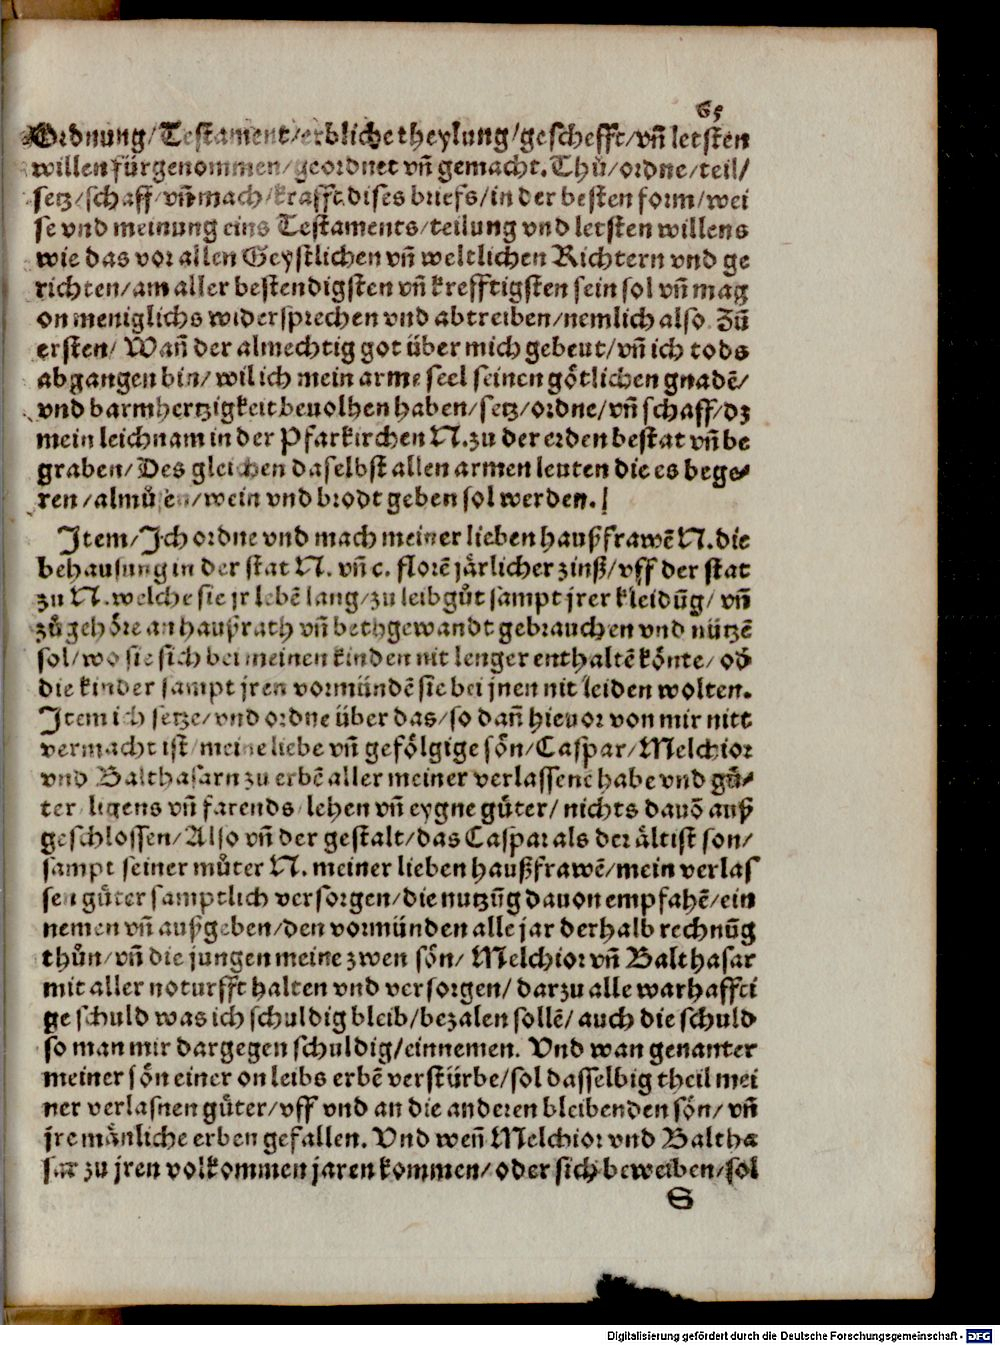 65
Ordnung/Testament/erbliche theylung/geschefft/vñ letsten
willen fürgenommen/geordnet vñ gemacht. Thů/ordne/teil/
setz/schaff/vñ mach/krafft dises briefs/in der besten form/wei
se vnd meinung eins Testaments/teilung vnd letsten willens
wie das vor allen Geystlichen vñ weltlichen Richtern vnd ge
richten/am aller bestendigsten vñ krefftigsten sein sol vñ mag
on meniglichs widersprechen vnd abtreiben/nemlich also. Zů
ersten/ Wañ der almechtig got über mich gebeut/vñ ich tods
abgangen bin/wil ich mein arme seel seinen götlichen gnadē/
vnd barmhertzigkeit beuolhen haben/setz/ordne/vñ schaff/dz
mein leichnam in der Pfarkirchen N. zu der erden bestat vñ be
graben/Des gleichen daselbst allen armen leuten die es bege⸗
ren/almůsen/wein vnd brodt geben sol werden.
Item/Ich ordne vnd mach meiner lieben haußfrawē N. die
behausung in der stat N. vñ c. florē järlicher zinß/vff der stat
zu N. welche sie jr lebē lang/zu leibgůt sampt jrer kleidūg/ vñ
zůgehöre an haußrath vñ bethgewandt gebrauchen vnd nützē
sol/wo sie sich bei meinen kinden nit lenger enthaltē könte/ oď
die kinder sampt jren vormündē sie bei jnen nit leiden wolten.
Item ich setze/vnd ordne über das/so dañ hieuor von mir nitt
vermacht ist/meine liebe vñ gefölgige sön/Caspar/Melchior
vnd Balthasarn zu erbē aller meiner verlassenē habe vnd gů⸗
ter ligens vñ farends lehen vñ eygne gůter/ nichts dauō auß
geschlossen/Also vñ der gestalt/das Caspar als der ältist son/
sampt seiner můter N. meiner lieben haußfrawē/mein verlas
sen gůter samptlich versorgen/die nutzūg dauon empfahē/ein
nemen vñ außgeben/den vormünden alle jar derhalb rechnūg
thůn/vñ die jungen meine zwen sön/ Melchior vñ Balthasar
mit aller noturfft halten vnd versorgen/ darzu alle warhaffti
ge schuld was ich schuldig bleib/bezalen sollē/ auch die schuld
so man mir dargegen schuldig/einnemen. Vnd wan genanter
meiner sön einer on leibs erbē verstürbe/sol dasselbig theil mei
ner verlasnen gůter/vff vnd an die anderen bleibenden sön/ vñ
jre mänliche erben gefallen. Vnd weñ Melchior vnd Baltha
sar zu jren volkommen jaren kommen/oder sich beweiben/sol
S
Digitalisierung gefördert durch die Deutsche Forschungsgemeinschaft - DFG